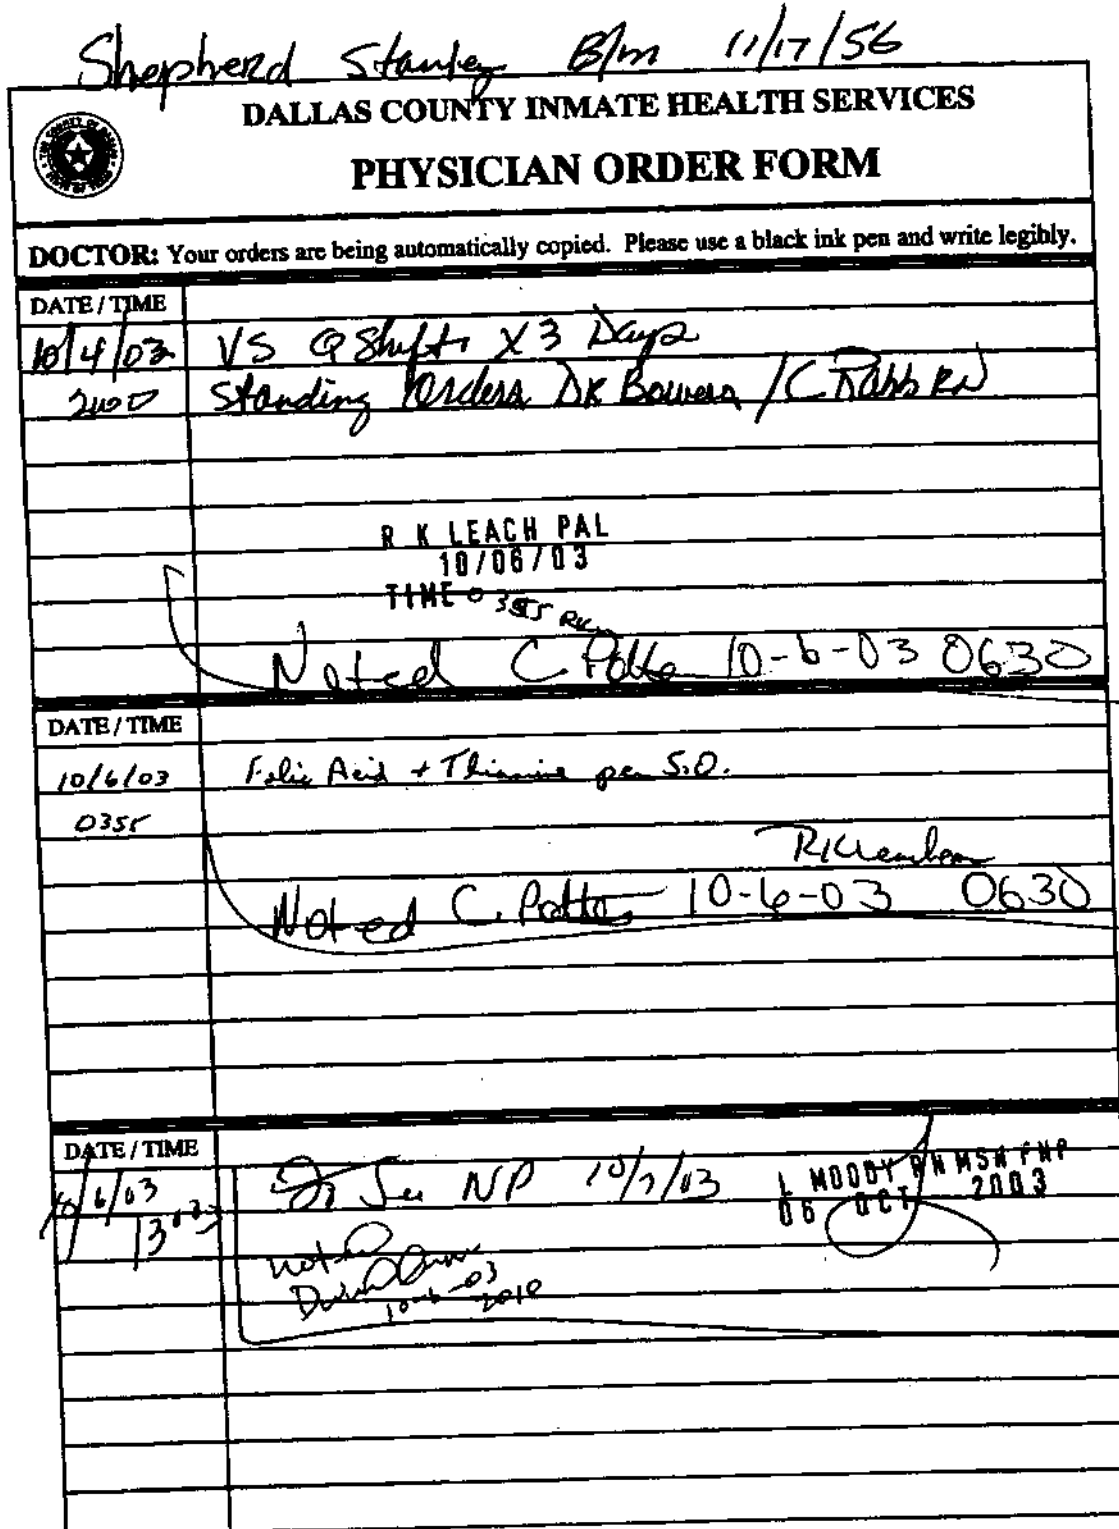 Shepherd Stanley B/m 11/17/56
DALLAS COUNTY INMATE HEALTH SERVICES
PHYSICIAN ORDER FORM
DOCTOR: Your orders are being automatically copied. Please use a black ink pen and write legibly.
DATE / TIME
10/4/03 VS Q Shift X 3 Days
2400 Standing Orders DR Bowers / C Rabb RN
R K LEACH PAL
10/06/03
TIME 0355 RK
Noted C Potts 10-6-03 0630
DATE / TIME
10/6/03 Folic Acid + Thiamine per S.O.
0355
RKLeach
Noted C. Potts 10-6-03 0630
DATE / TIME
10/6/03 See NP 10/7/03 L MOODY RN MSN FNP
13 06 OCT 2003
noted
10-6-03
2010